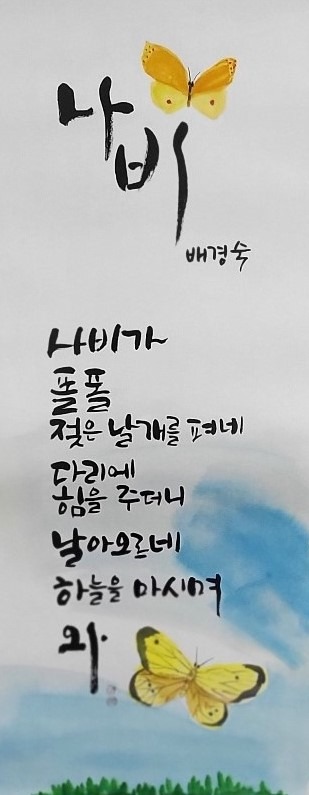 나비
배경숙
나비가
폴폴
젖은 날개를 펴네
다리에
힘을 주더니
날아오르네
하늘을 마시며
와.